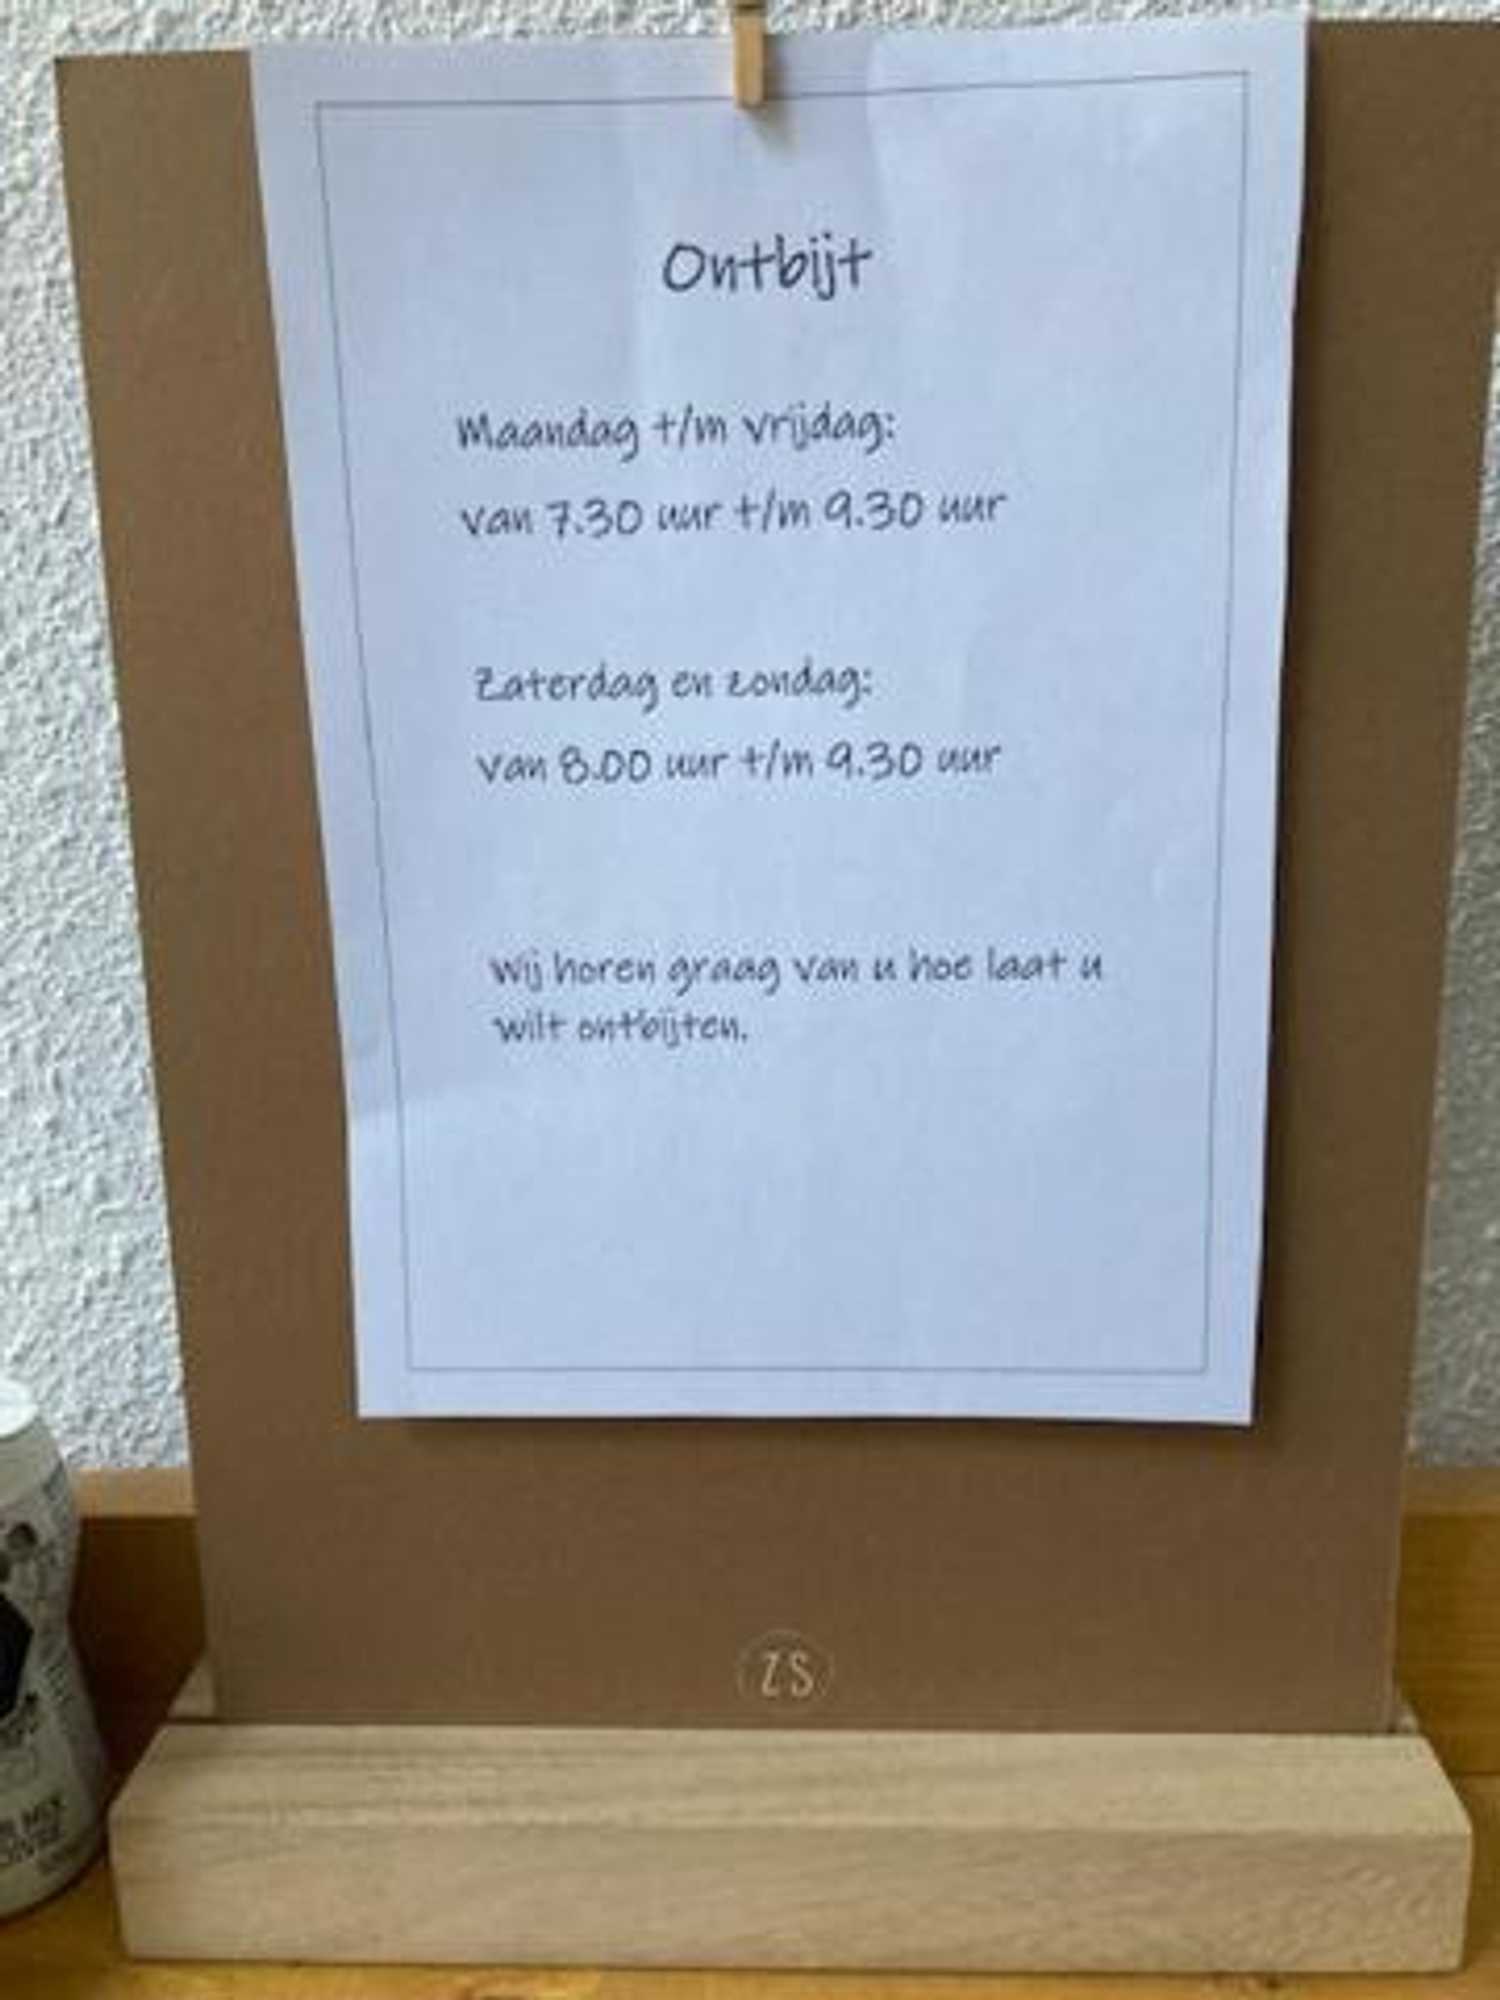 Ontbijt
Maandag t/m vrijdag:
van 7.30 uur t/m 9.30 uur
Zaterdag en zondag:
van 8.00 uur t/m 9.30 uur
Wij horen graag van u hoe laat u
wilt ontbijten.
ZS